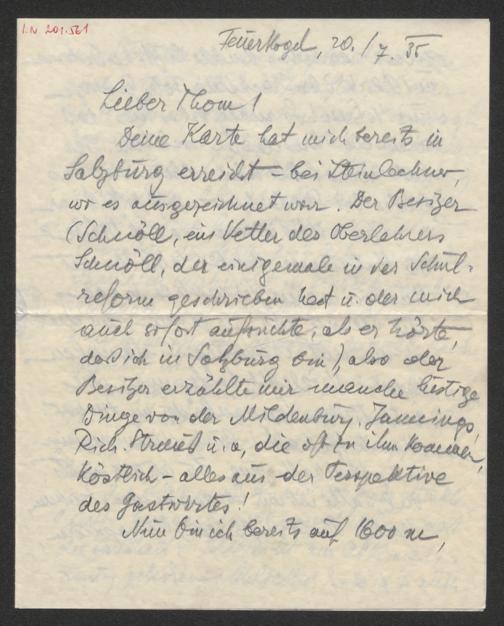 I.N 201.561
Feuerkogel, 20./7. 35
Lieber Thom!
Deine Karte hat mich bereits in
Salzburg erreicht – bei Steinlechner,
wo es ausgezeichnet war. Der Besitzer
(Schnöll, ein Vetter des Oberlehrers
Schnöll, der einigemale in der Schul-
reform geschrieben hat u. der mich
auch sofort aufsuchte, als er hörte,
daß ich in Salzburg bin), also der
Besitzer erzählte mir manche lustige
Dinge von der Mildenburg, Jannings,
Rich. Strauß u. a., die oft zu ihm kommen,
köstlich – alles aus der Perspektive
des Gastwirtes!
Nun bin ich bereits auf 1600 m,